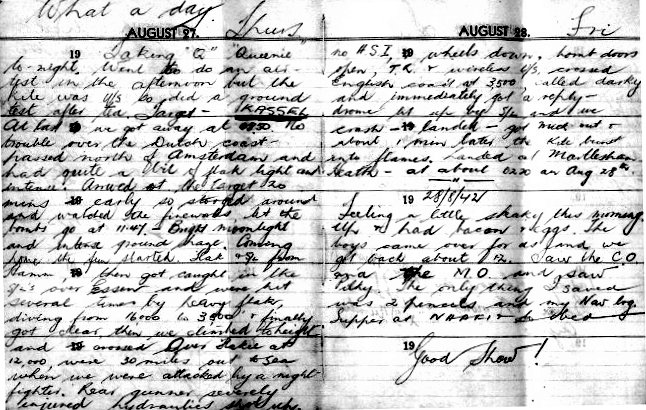 What a day. Thurs
AUGUST 27.
19 Taking "Q" "Queenie"
to-night. Went to do an air-
test in the afternoon but the
kite was U/S so did a ground
test after tea. Target - KASSEL
At last we got away at No
trouble over the Dutch coast -
passed north of Amsterdam and
had quite a bit of flak light and
intense. Arrived at the target 20
mins early so stooged around
and watched the fireworks, let the
bombs go at 11.47 - Bright moonlight
and intense ground haze. Coming
home the fun started. Flak & S/L from
Hamm then got caught in the
S/L's over Essen and were hit
several times by heavy flak,
diving from 16000 to & finally
got clear, then we climbed to height
and crossed Over at
12,000 were 30 miles out to sea
when we were attacked by a night-
fighter. Rear gunner severely
injured, hydraulics shot up,
Fri
AUGUST 28.
no A.S.I, wheels down, bomb doors
open, T.R. & wireless U/S, crossed
English coast at 3,500, called darky
and immediately got a reply -
drome lit up by S/L and we
crash - landed - got out &
about 1 min later the kite burst
into flames. Landed at Martlesham
Heath - at about on Aug 28th.
19 28/8/42
Feeling a little shaky this morning.
Up & had bacon & eggs. The
boys came over for us and we
got back about 12. Saw the C.O.
and the M.O. and saw
The only thing I saved
was 2 pencils and my Nav log.
Supper at & to bed
19
Good Show!